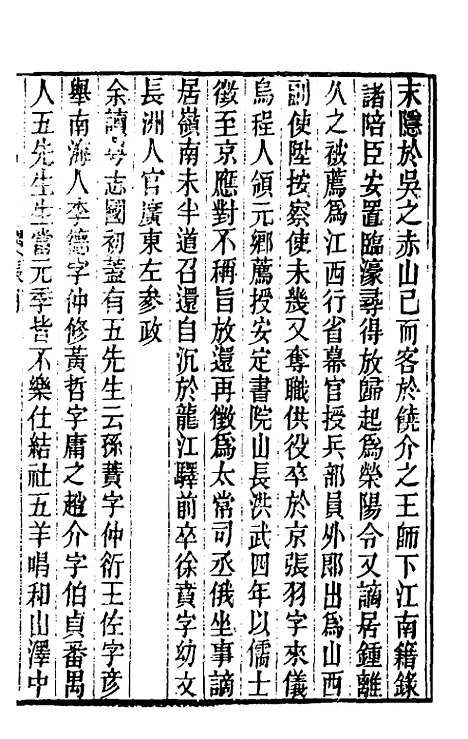 末隱於吳之赤山已而客於饒介之王師下江南籍錄
諸陪臣安置臨濠尋得放歸起為滎陽令又謫居鍾離
久之被薦為江西行省幕官授兵部員外郎出為山西
副使陞按察使未幾又奪職供役卒於京張羽字來儀
烏程人領元鄉薦授安定書院山長洪武四年以儒士
徵至京應對不稱旨放還再徵為太常司丞俄坐事謫
居嶺南未半道召還自沉於龍江驛前卒徐賁字幼文
長洲人官廣東左參政
余讀粵志國初蓋有五先生云孫蕡字仲衍王佐字彥
舉南海人李德字仲修黃哲字庸之趙介字伯貞番禺
人五先生生當元季皆不樂仕結社五羊唱和山澤中